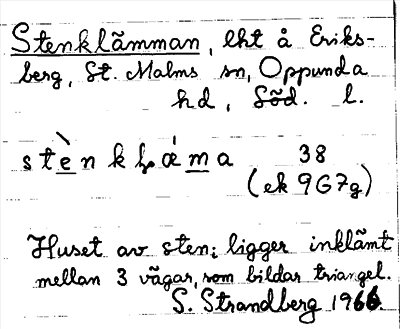 Stenklämman, lht å Eriks-
berg, St. Malms sn, Oppunda
hd, Söd. l.
stènkḷǽma 38
(ek 9G7g)
Huset av sten; ligger inklämt
mellan 3 vägar, som bildar triangel.
S. Strandberg 1966